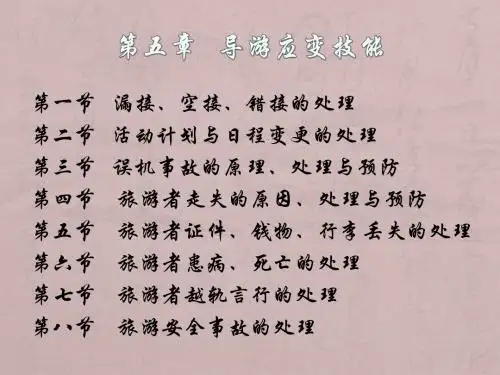 第五章 导游应变技能
第一节 漏接、空接、错接的处理
第二节 活动计划与日程变更的处理
第三节 误机事故的原理、处理与预防
第四节 旅游者走失的原因、处理与预防
第五节 旅游者证件、钱物、行李丢失的处理
第六节 旅游者患病、死亡的处理
第七节 旅游者越轨言行的处理
第八节 旅游安全事故的处理